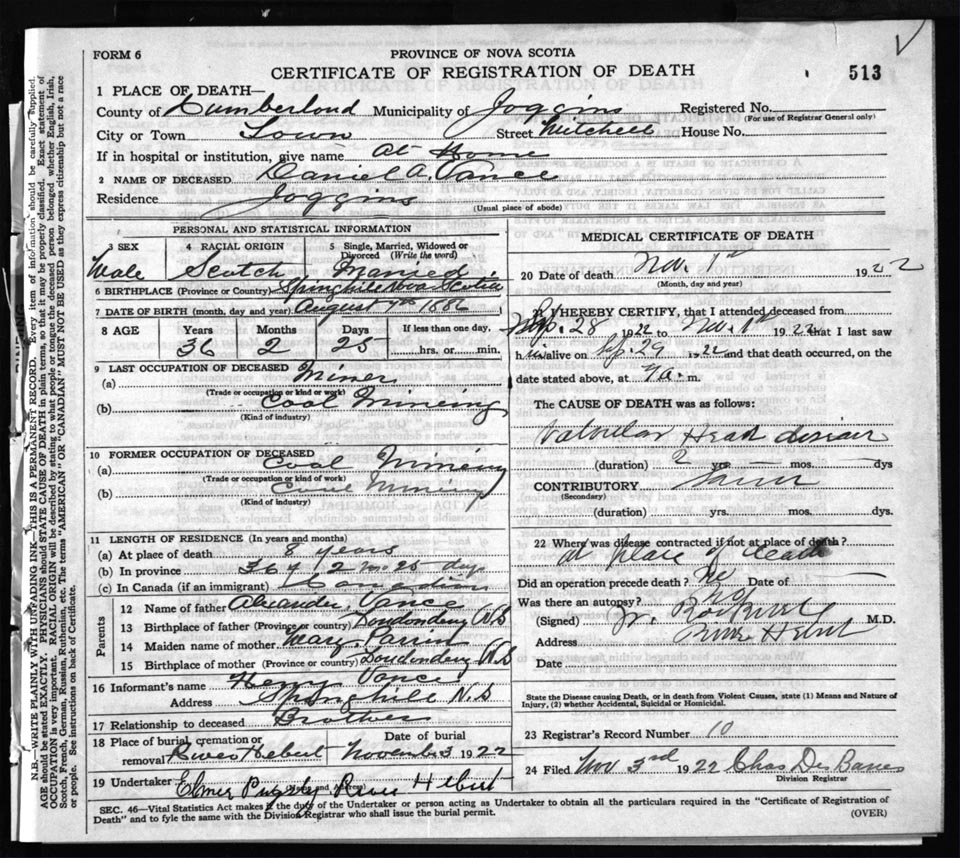 FORM 6
PROVINCE OF NOVA SCOTIA
CERTIFICATE OF REGISTRATION OF DEATH
513
1 PLACE OF DEATH—
County of Cumberland Municipality of Joggins Registered No.
(For use of Registrar General only)
City or Town Town Street Mitchell House No.
If in hospital or institution, give name At Home
2 NAME OF DECEASED Daniel A. Vance
Residence Joggins
(Usual place of abode)
PERSONAL AND STATISTICAL INFORMATION
3 SEX 4 RACIAL ORIGIN 5 Single, Married, Widowed or
Divorced (Write the word)
Male Scotch Married
6 BIRTHPLACE (Province or Country) Springhill Nova Scotia
7 DATE OF BIRTH (month, day and year) August 7th 1886
8 AGE Years Months Days If less than one day,
36 2 25 hrs. or min.
9 LAST OCCUPATION OF DECEASED
(a) Miner
(Trade or occupation or kind or work)
(b) Coal Mineing
(Kind of industry)
10 FORMER OCCUPATION OF DECEASED
(a) Coal Mineing
(Trade or occupation or kind or work)
(b) Mineing
(Kind of industry)
11 LENGTH OF RESIDENCE (In years and months)
(a) At place of death 8 years
(b) In province 36 y 2 mo 25 days
(c) In Canada (if an immigrant) Canadian
Parents
12 Name of father Alexander Vance
13 Birthplace of father (Province or country) N.S
14 Maiden name of mother Mary
15 Birthplace of mother (Province or country) N.S
16 Informant's name Henry Vance
Address Springhill N.S
17 Relationship to deceased Brother
18 Place of burial, cremation or removal River Hebert
Date of burial November 3 1922
19 Undertaker Elmer Pugsley River Hebert
MEDICAL CERTIFICATE OF DEATH
20 Date of death Nov. 1st 1922
(Month, day and year)
21 I HEREBY CERTIFY, that I attended deceased from
Sep. 28 1922 to Nov. 1st 1922 that I last saw
him alive on Sep. 29 1922 and that death occurred, on the
date stated above, at 7 a. m.
The CAUSE OF DEATH was as follows:
Valvular Heart disease
(duration) 2 yrs. mos. dys
CONTRIBUTORY
(Secondary)
(duration) yrs. mos. dys.
22 Where was disease contracted if not at place of death?
at place of death
Did an operation precede death? No Date of
Was there an autopsy? No
(Signed) Rockwell M.D.
Address River Hebert
Date
State the Disease causing Death, or in death from Violent Causes, state (1) Means and Nature of
Injury, (2) whether Accidental, Suicidal or Homicidal.
23 Registrar's Record Number 10
24 Filed Nov 3rd 1922 Chas Des Barres
Division Registrar
SEC. 46—Vital Statistics Act makes it the duty of the Undertaker or person acting as Undertaker to obtain all the particulars required in the "Certificate of Registration of
Death" and to fyle the same with the Division Registrar who shall issue the burial permit.
(OVER)
N.B.—WRITE PLAINLY WITH UNFADING INK—THIS IS A PERMANENT RECORD. Every item of information should be carefully supplied.
AGE should be stated EXACTLY. PHYSICIANS should STATE CAUSE OF DEATH in plain terms, so that it may be properly classified. Exact statement of
OCCUPATION is very important. RACIAL ORIGIN will be described by stating to what people or tongue the deceased person belonged whether English, Irish,
Scotch, French, German, Russian, Ruthenian, etc. The terms "AMERICAN" or "CANADIAN" MUST NOT BE USED as they express citizenship but not a race
or people. See instructions on back of Certificate.